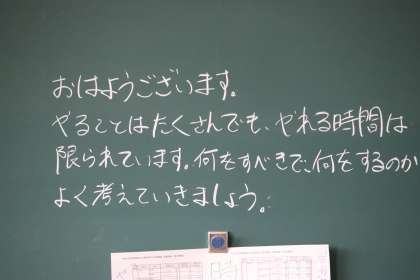 おはようございます。
やることはたくさんでも、やれる時間は
限られています。何をすべきで、何をするのか
よく考えていきましょう。